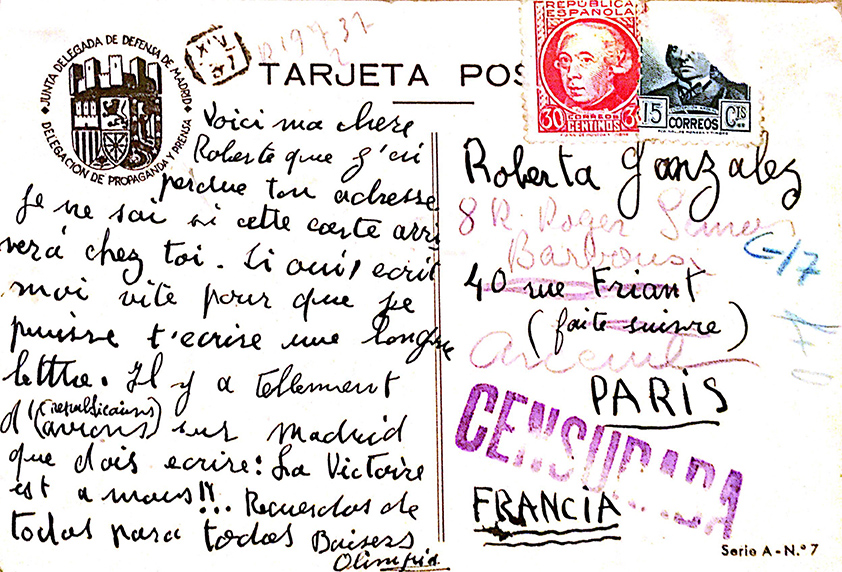 JUNTA DELEGADA DE DEFENSA DE MADRID
DELEGACION DE PROPAGANDA Y PRENSA
XI V
37
19737
2
TARJETA POS
REPUBLICA
ESPAÑOLA
30 CENTIMOS 3
CORREOS
15 CTS
CORREOS
Voici ma chere
Roberte que j'ai
perdue ton adresse
Je ne sai si cette carte arri
verá chez toi. Si oui, ecrit
moi vite pour que je
puisse t'ecrire une longue
lettre. Il y a tellement
d'(republicains
avions) sur Madrid
que dois ecrire: La Victoire
est a nous!!... Recuerdos de
todos para todos Baisers
Olimpia.
Roberta Gonzalez
8 R. Roger
Barbouse
G/7
40 rue Friant
(faite suivre)
Arcueil
PARIS
CENSURADA
FRANCIA
Serie A - N.º 7